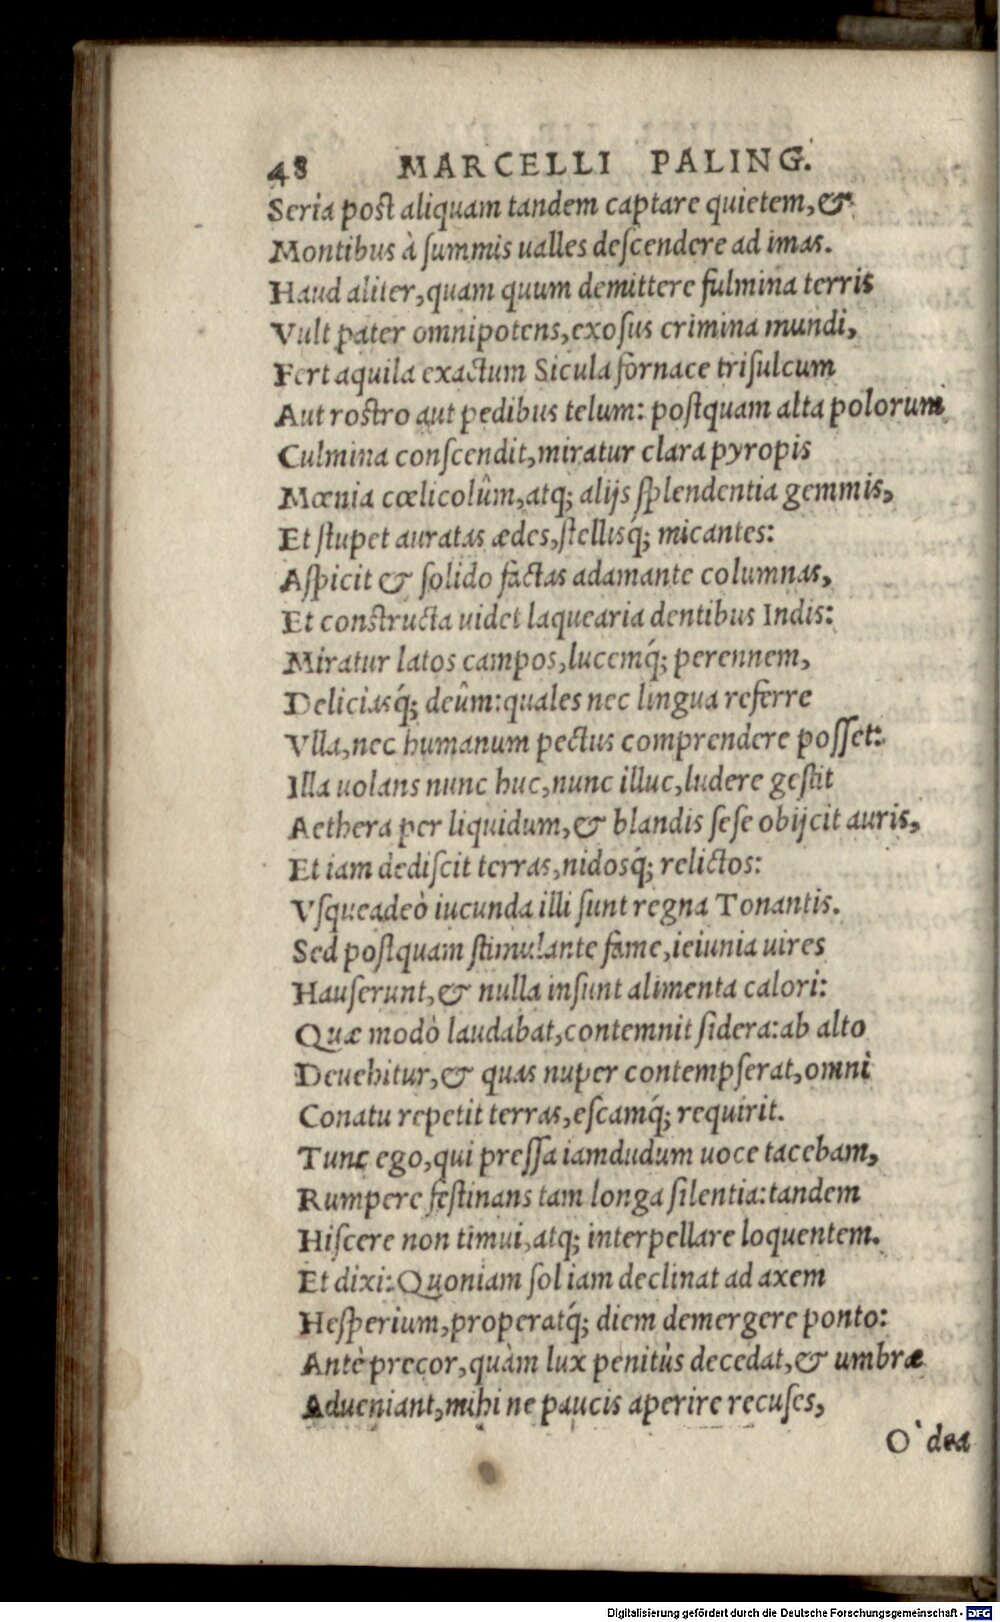 48 MARCELLI PALING.
Seria post aliquam tandem captare quietem, &
Montibus à ſummis ualles deſcendere ad imas.
Haud aliter, quam quum demittere fulmina terris
Vult pater omnipotens, exoſus crimina mundi,
Fert aquila exactum Sicula fornace triſulcum
Aut rostro aut pedibus telum: poſtquam alta polorum
Culmina conſcendit, miratur clara pyropis
Mœnia cœlicolûm, atq; alijs ſplendentia gemmis,
Et ſtupet auratas ædes, ſtellisq́; micantes:
Aſpicit & ſolido factas adamante columnas,
Et constructa uidet laquearia dentibus Indis:
Miratur latos campos, lucemq́; perennem,
Deliciasq́; deûm: quales nec lingua referre
Vlla, nec humanum pectus comprendere poſſet:
Illa uolans nunc huc, nunc illuc, ludere geſtit
Aethera per liquidum, & blandis ſeſe obijcit auris,
Et iam dediſcit terras, nidosq́; relictos:
Vſqueadeò iucunda illi ſunt regna Tonantis.
Sed poſtquam ſtimulante fame, ieiunia uires
Hauſerunt, & nulla inſunt alimenta calori:
Quæ modò laudabat, contemnit ſidera: ab alto
Deuehitur, & quas nuper contempſerat, omni
Conatu repetit terras, eſcamq́; requirit.
Tunc ego, qui preſſa iamdudum uoce tacebam,
Rumpere feſtinans tam longa ſilentia: tandem
Hiſcere non timui, atq; interpellare loquentem.
Et dixi: Quoniam ſol iam declinat ad axem
Heſperium, properatq́; diem demergere ponto:
Antè precor, quàm lux penitùs decedat, & umbræ
Adueniant, mihi ne paucis aperire recuſes,
O` dea
Digitalisierung gefördert durch die Deutsche Forschungsgemeinschaft - DFG